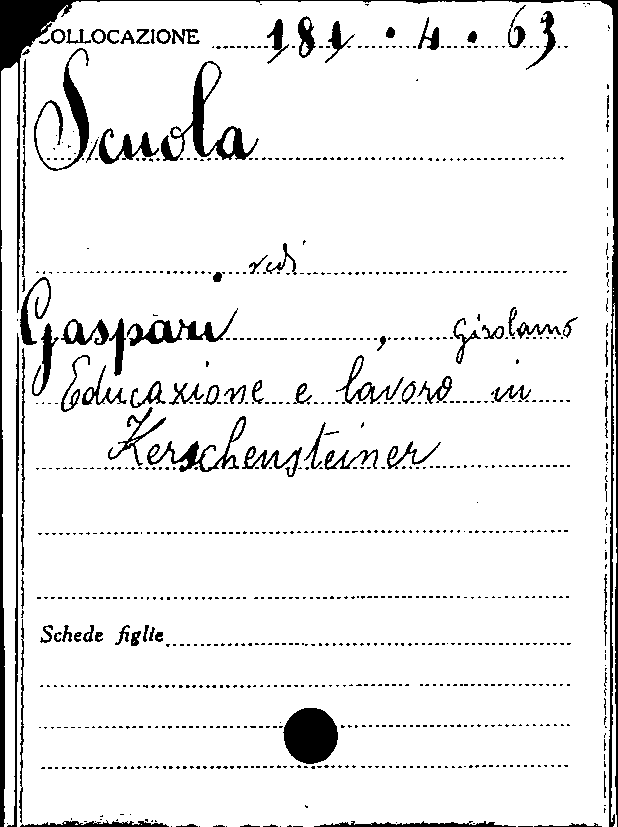 COLLOCAZIONE 181 . 4 . 63
Scuola
vedi
Gaspari, Girolamo
Educazione e lavoro in
Kerschensteiner
Schede figlie